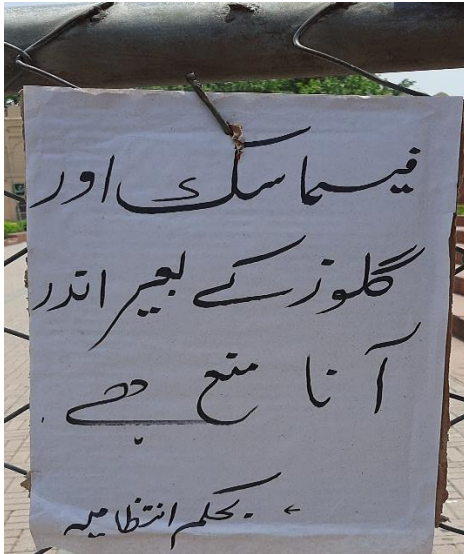 فیسماسک اور
گلوز کے بغیر اندر
آنا منع ہے۔
بحکم انتظامیہ